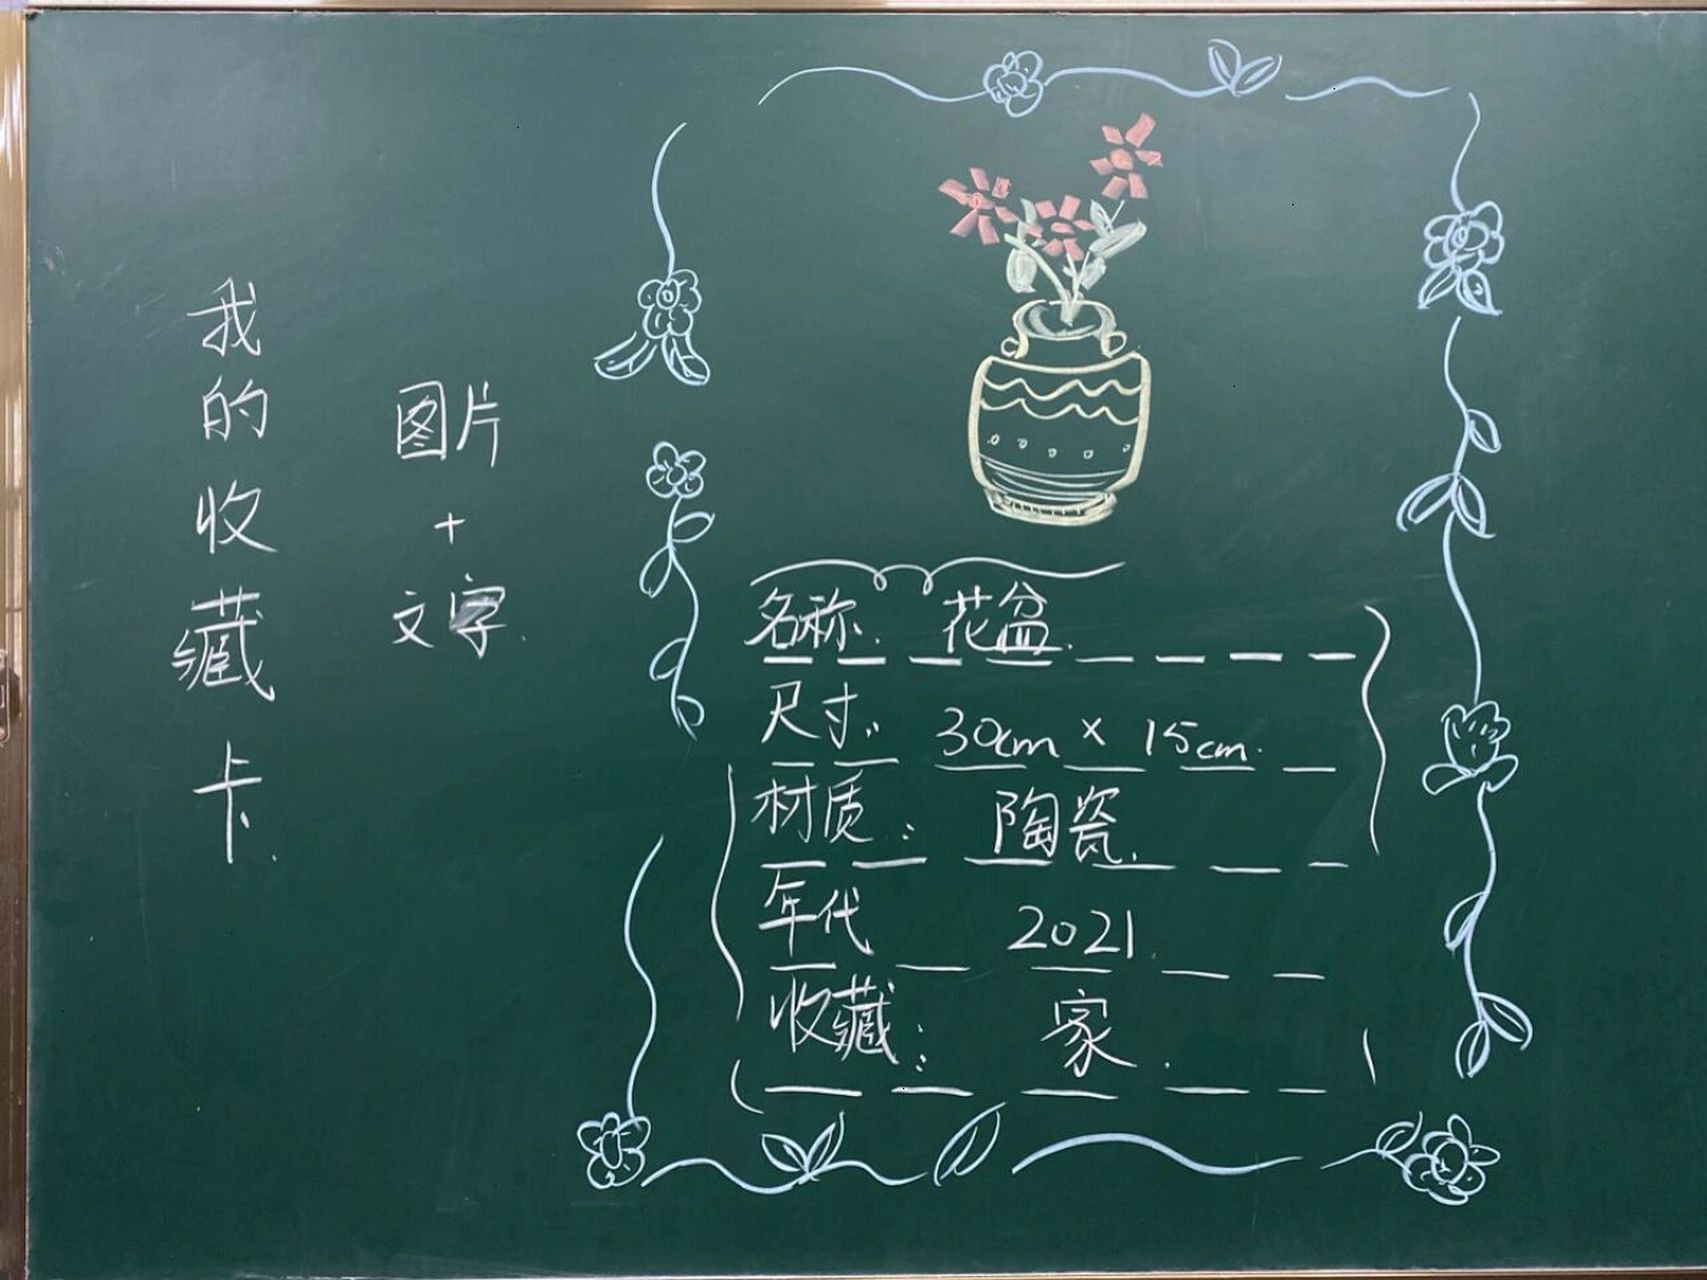 我的收藏卡.
图片
+
文字.
名称. 花盆.
尺寸: 30cm × 15cm.
材质: 陶瓷.
年代 2021.
收藏: 家.